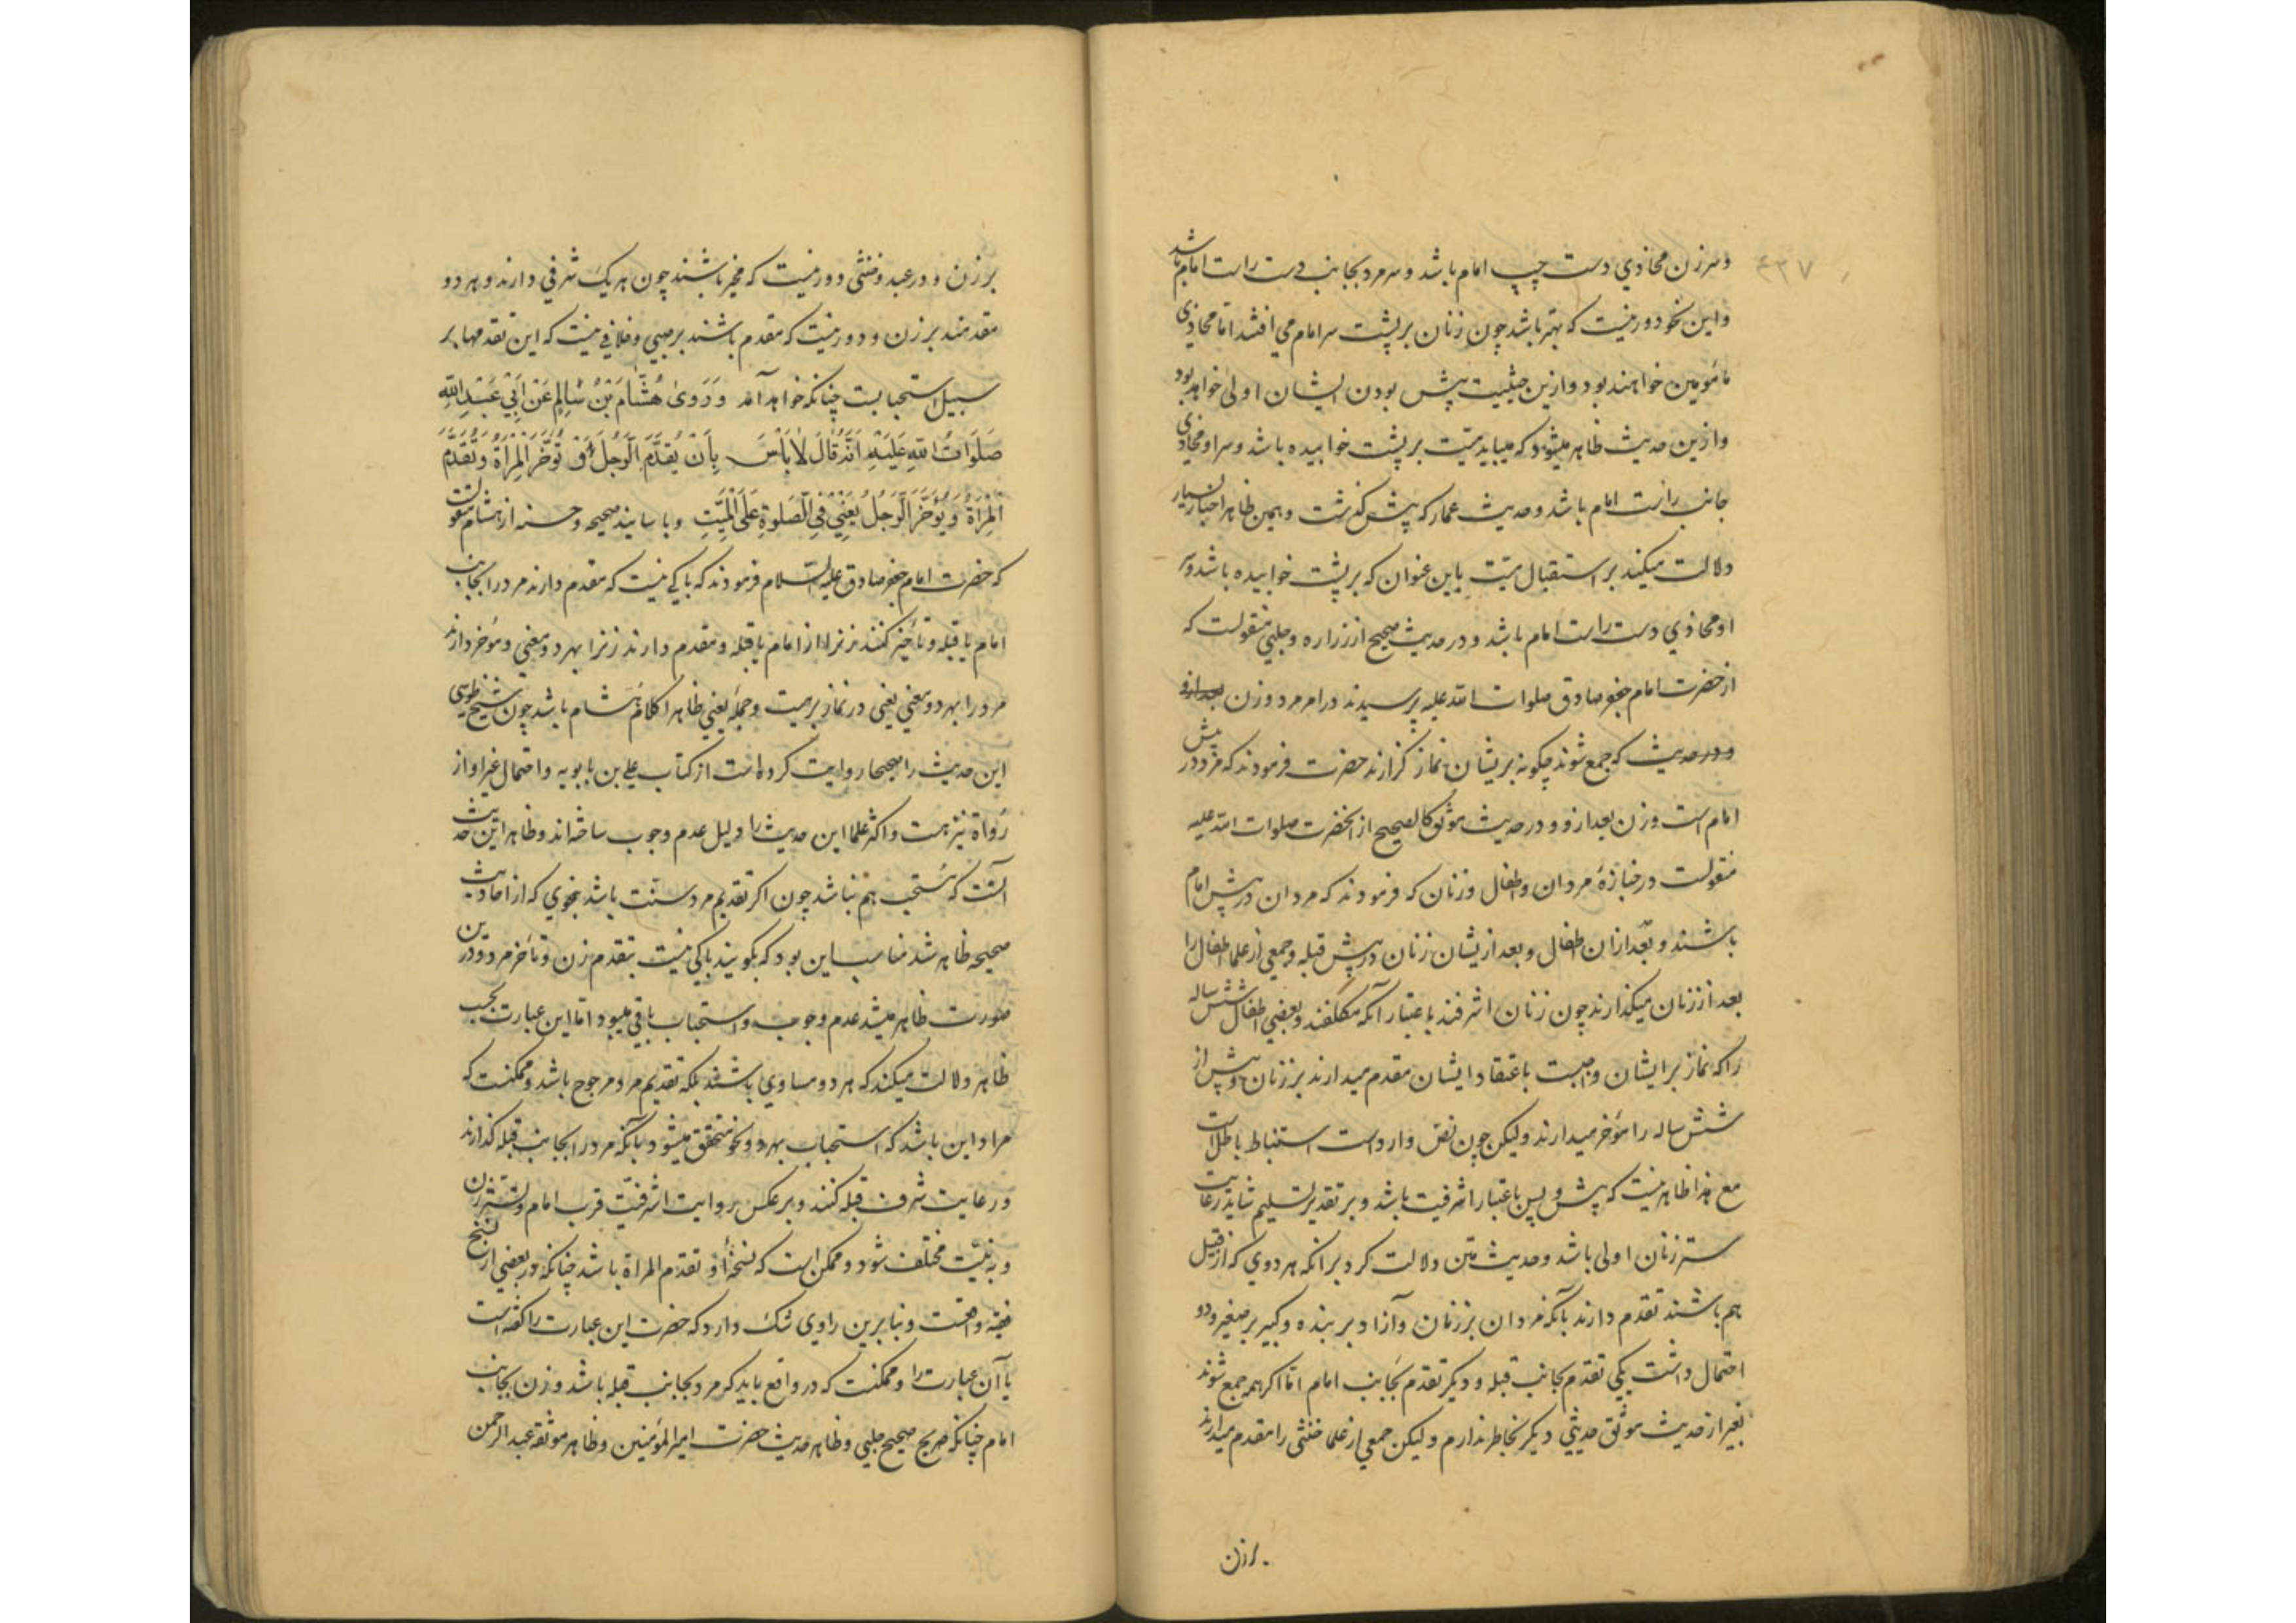 ۴۳۷
وسر زن محاذي دست چپ امام باشد وسر مرد بجانب دست راست امام باشد
واین نحو دور نیست که بهتر باشد چون زنان بر پشت سر امام می افتند اما محاذي
مأمومین خواهند بود وازین حیثیت پیش بودن ایشان اولی خواهد بود
وازین حدیث ظاهر میشود که میباید میت بر پشت خوابیده باشد وسر او محاذي
جانب راست امام باشد وحدیث عمار که پیش گذشت وهمین ظاهر اخبار بسیار
دلالت میکند بر استقبال میت باین عنوان که بر پشت خوابیده باشد وسر
او محاذي دست راست امام باشد ودر حدیث صحیح از زراره وحلبي منقولست که
از حضرت امام جعفر صادق صلوات الله علیه پرسیدند در امر مرد وزن
ودر حدیث که جمع شوند چگونه بریشان نماز گزارند حضرت فرمودند که مرد در پیش
امام است وزن بعد ازو ودر حدیث موثق کالصحیح از آنحضرت صلوات الله علیه
منقولست در جنازهٔ مردان واطفال وزنان که فرمودند که مردان در پیش امام
باشند وبعد ازان اطفال وبعد ازیشان زنان در پیش قبله وجمعي از علما اطفال را
بعد از زنان میگذارند چون زنان اشرفند باعتبار آنکه مکلفند وبعضي اطفال شش ساله
را که نماز برایشان واجبست باعتقاد ایشان مقدم میدارند بر زنان وپیش از
شش ساله را مؤخر میدارند ولیکن چون نص وارد است استنباط باطل است
مع هذا ظاهر نیست که پیش وپس باعتبار اشرفیت باشد وبر تقدیر تسلیم شاید رعایت
ستر زنان اولی باشد وحدیث متن دلالت کرد برانکه هر دوي که از قبیل
هم باشند تقدم دارند بآنکه مردان بر زنان وآزاد بر بنده وکبیر بر صغیر ودو
احتمال داشت یکي تقدم بجانب قبله ودیگر تقدم بجانب امام اما اگر همه جمع شوند
بغیر از حدیث موثق حدیثي دیگر بخاطر ندارم ولیکن جمعي از علما خنثی را مقدم میدارند
بر زن
بر زن ودر عبد وخنثی دور نیست که مخیر باشند چون هر یک شرفي دارند وهر دو
مقدمند بر زن ودور نیست که مقدم باشند بر صبي وخلافي نیست که این تقدمها بر
سبیل استحبابست چنانکه خواهد آمد وَرَوىٰ هُشَّامَ بْنُ سَالِمٍ عَنْ اَبِيْ عَبْدِ اللهِ
صَلَوَاتُ اللهِ عَلَيْهِ اَنَّهُ قَالَ لَا بَأْسَ بِأَنْ يُقَدَّمَ الرَّجُلُ وَ تُؤَخَّرَ الْمِرْاَةُ وَتُقَدَّمَ
الْمِرْاَةُ وَيُؤَخَّرَ الرَّجُلُ يَعْنِيْ فِي الصَّلوةِ عَلَى الْمَيِّتِ وباسانید صحیحه وحسنه از هشام منقولست
که حضرت امام جعفر صادق علیه السلام فرمودند که باکي نیست که مقدم دارند مرد را بجانب
امام یا قبله وتأخیر کنند زنرا از امام یا قبله ومقدم دارند زنرا بهر دو معني ومؤخر دارند
مرد را بهر دو معني یعنی در نماز بر میت وجملهٔ یعني ظاهرا کلام هشام باشد چون شیخ طوسي
این حدیث را صحیحا روایت کرده است از کتاب علي بن بابویه واحتمال غیر او از
رواة نیز هست واکثر علما این حدیث را دلیل عدم وجوب ساخته اند وظاهر این حدیث
آنست که مستحب هم نباشد چون اگر تقدیم مرد سنت باشد بنحوي که از احادیث
صحیحه ظاهر شد مناسب این بود که بگویند باکي نیست بتقدم زن وتأخر مرد ودرین
صورت ظاهر میشد عدم وجوب واستحباب باقي میبود اما این عبارت بحسب
ظاهر دلالت میکند که هر دو مساوي باشند بلکه تقدیم مرد مرجوح باشد وممکنست که
مراد این باشد که استحباب بهر دو نحو متحقق میشود بآنکه مرد را بجانب قبله گذارند
ورعایت شرف قبله کنند وبر عکس بروایت اشرفیت قرب امام وتستر زن
وبه نیت مختلف شود وممکن است که نسخهٔ او تقدم المراة باشد چنانکه در بعضي از نسخ
فقیه واقعست وبنابرین راوي شک دارد که حضرت این عبارت را گفته است
یا آن عبارت را وممکنست که در واقع باید که مرد بجانب قبله باشد وزن بجانب
امام چنانکه صریح صحیح حلبي وظاهر حدیث حضرت امیر المؤمنین وظاهر موثقه عبد الرحمن